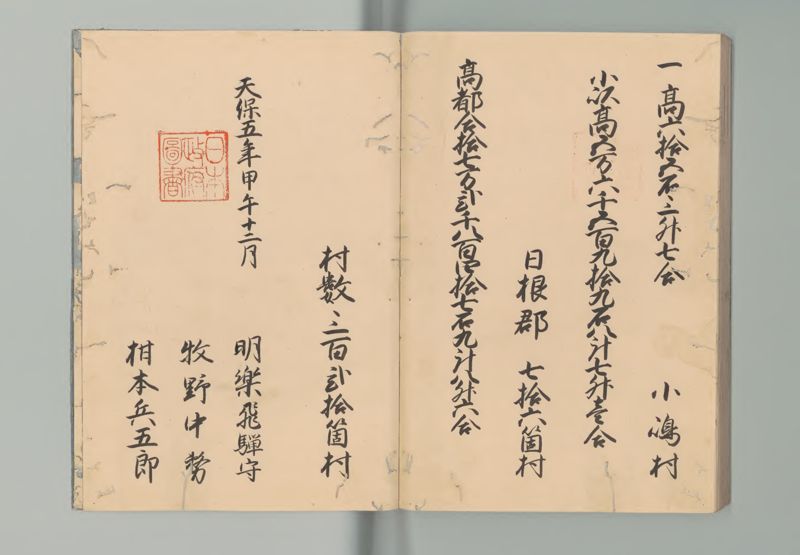 一高六拾六石三升七合
小嶋村
小以高五万六千五百九拾九石八斗七升壱合
日根郡　七拾六箇村
高都合拾七万弐千八百四拾七石九斗八升六合
村数三百弐拾箇村
天保五年甲午十二月
明楽飛騨守
牧野中務
柑本兵五郎
日本
政府
圖書